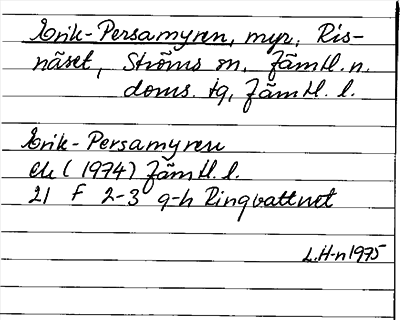 Erik-Persamyren, myr, Ris-
näset, Ströms sn, Jämtl. n.
doms. tg, Jämtl. l.
Erik-Persamyren
ek (1974) Jämtl. l.
21 F 2-3 g-h Ringvattnet
L.H-n 1975